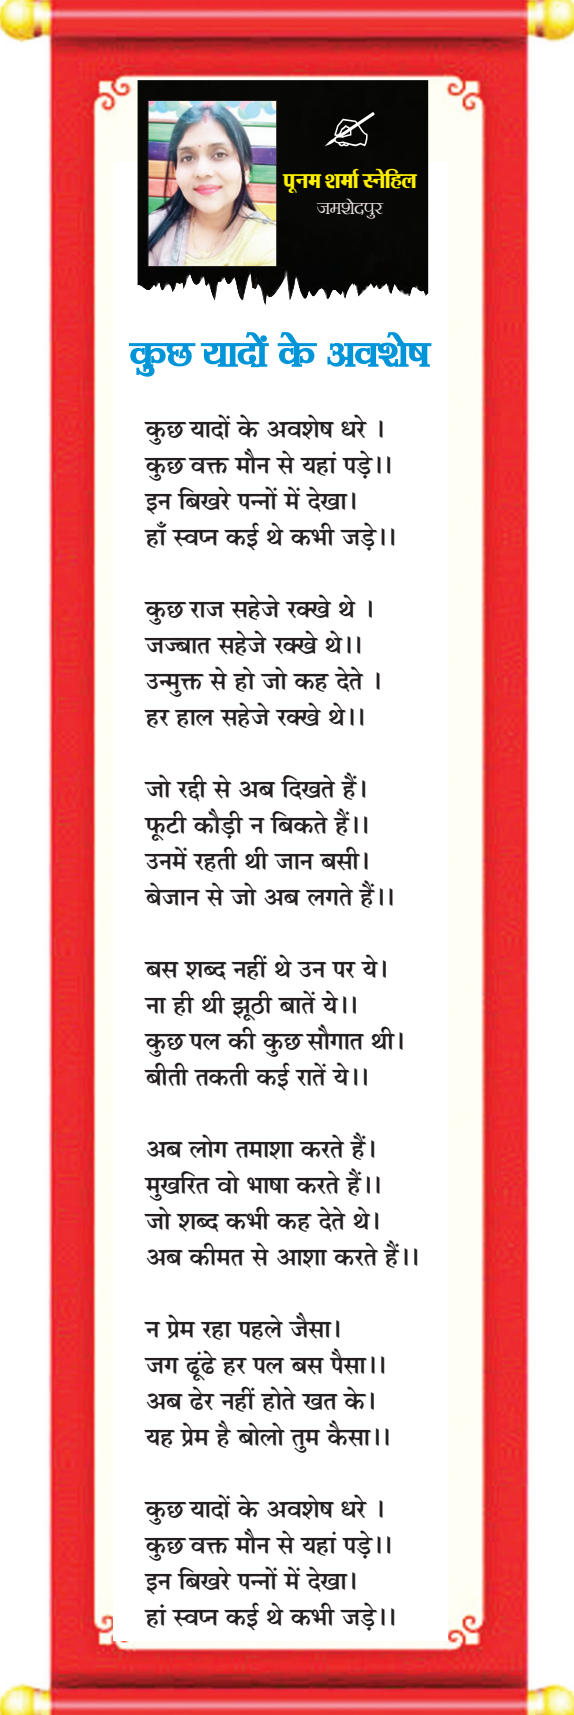 पूनम शर्मा स्नेहिल
जमशेदपुर
कुछ यादों के अवशेष
कुछ यादों के अवशेष धरे ।
कुछ वक्त मौन से यहां पड़े।।
इन बिखरे पन्नों में देखा।
हाँ स्वप्न कई थे कभी जड़े।।
कुछ राज सहेजे रक्खे थे ।
जज्बात सहेजे रक्खे थे।।
उन्मुक्त से हो जो कह देते ।
हर हाल सहेजे रक्खे थे।।
जो रद्दी से अब दिखते हैं।
फूटी कौड़ी न बिकते हैं।।
उनमें रहती थी जान बसी।
बेजान से जो अब लगते हैं।।
बस शब्द नहीं थे उन पर ये।
ना ही थी झूठी बातें ये।।
कुछ पल की कुछ सौगात थी।
बीती तकती कई रातें ये।।
अब लोग तमाशा करते हैं।
मुखरित वो भाषा करते हैं।।
जो शब्द कभी कह देते थे।
अब कीमत से आशा करते हैं।।
न प्रेम रहा पहले जैसा।
जग ढूंढे हर पल बस पैसा।।
अब ढेर नहीं होते खत के।
यह प्रेम है बोलो तुम कैसा।।
कुछ यादों के अवशेष धरे ।
कुछ वक्त मौन से यहां पड़े।।
इन बिखरे पन्नों में देखा।
हां स्वप्न कई थे कभी जड़े।।